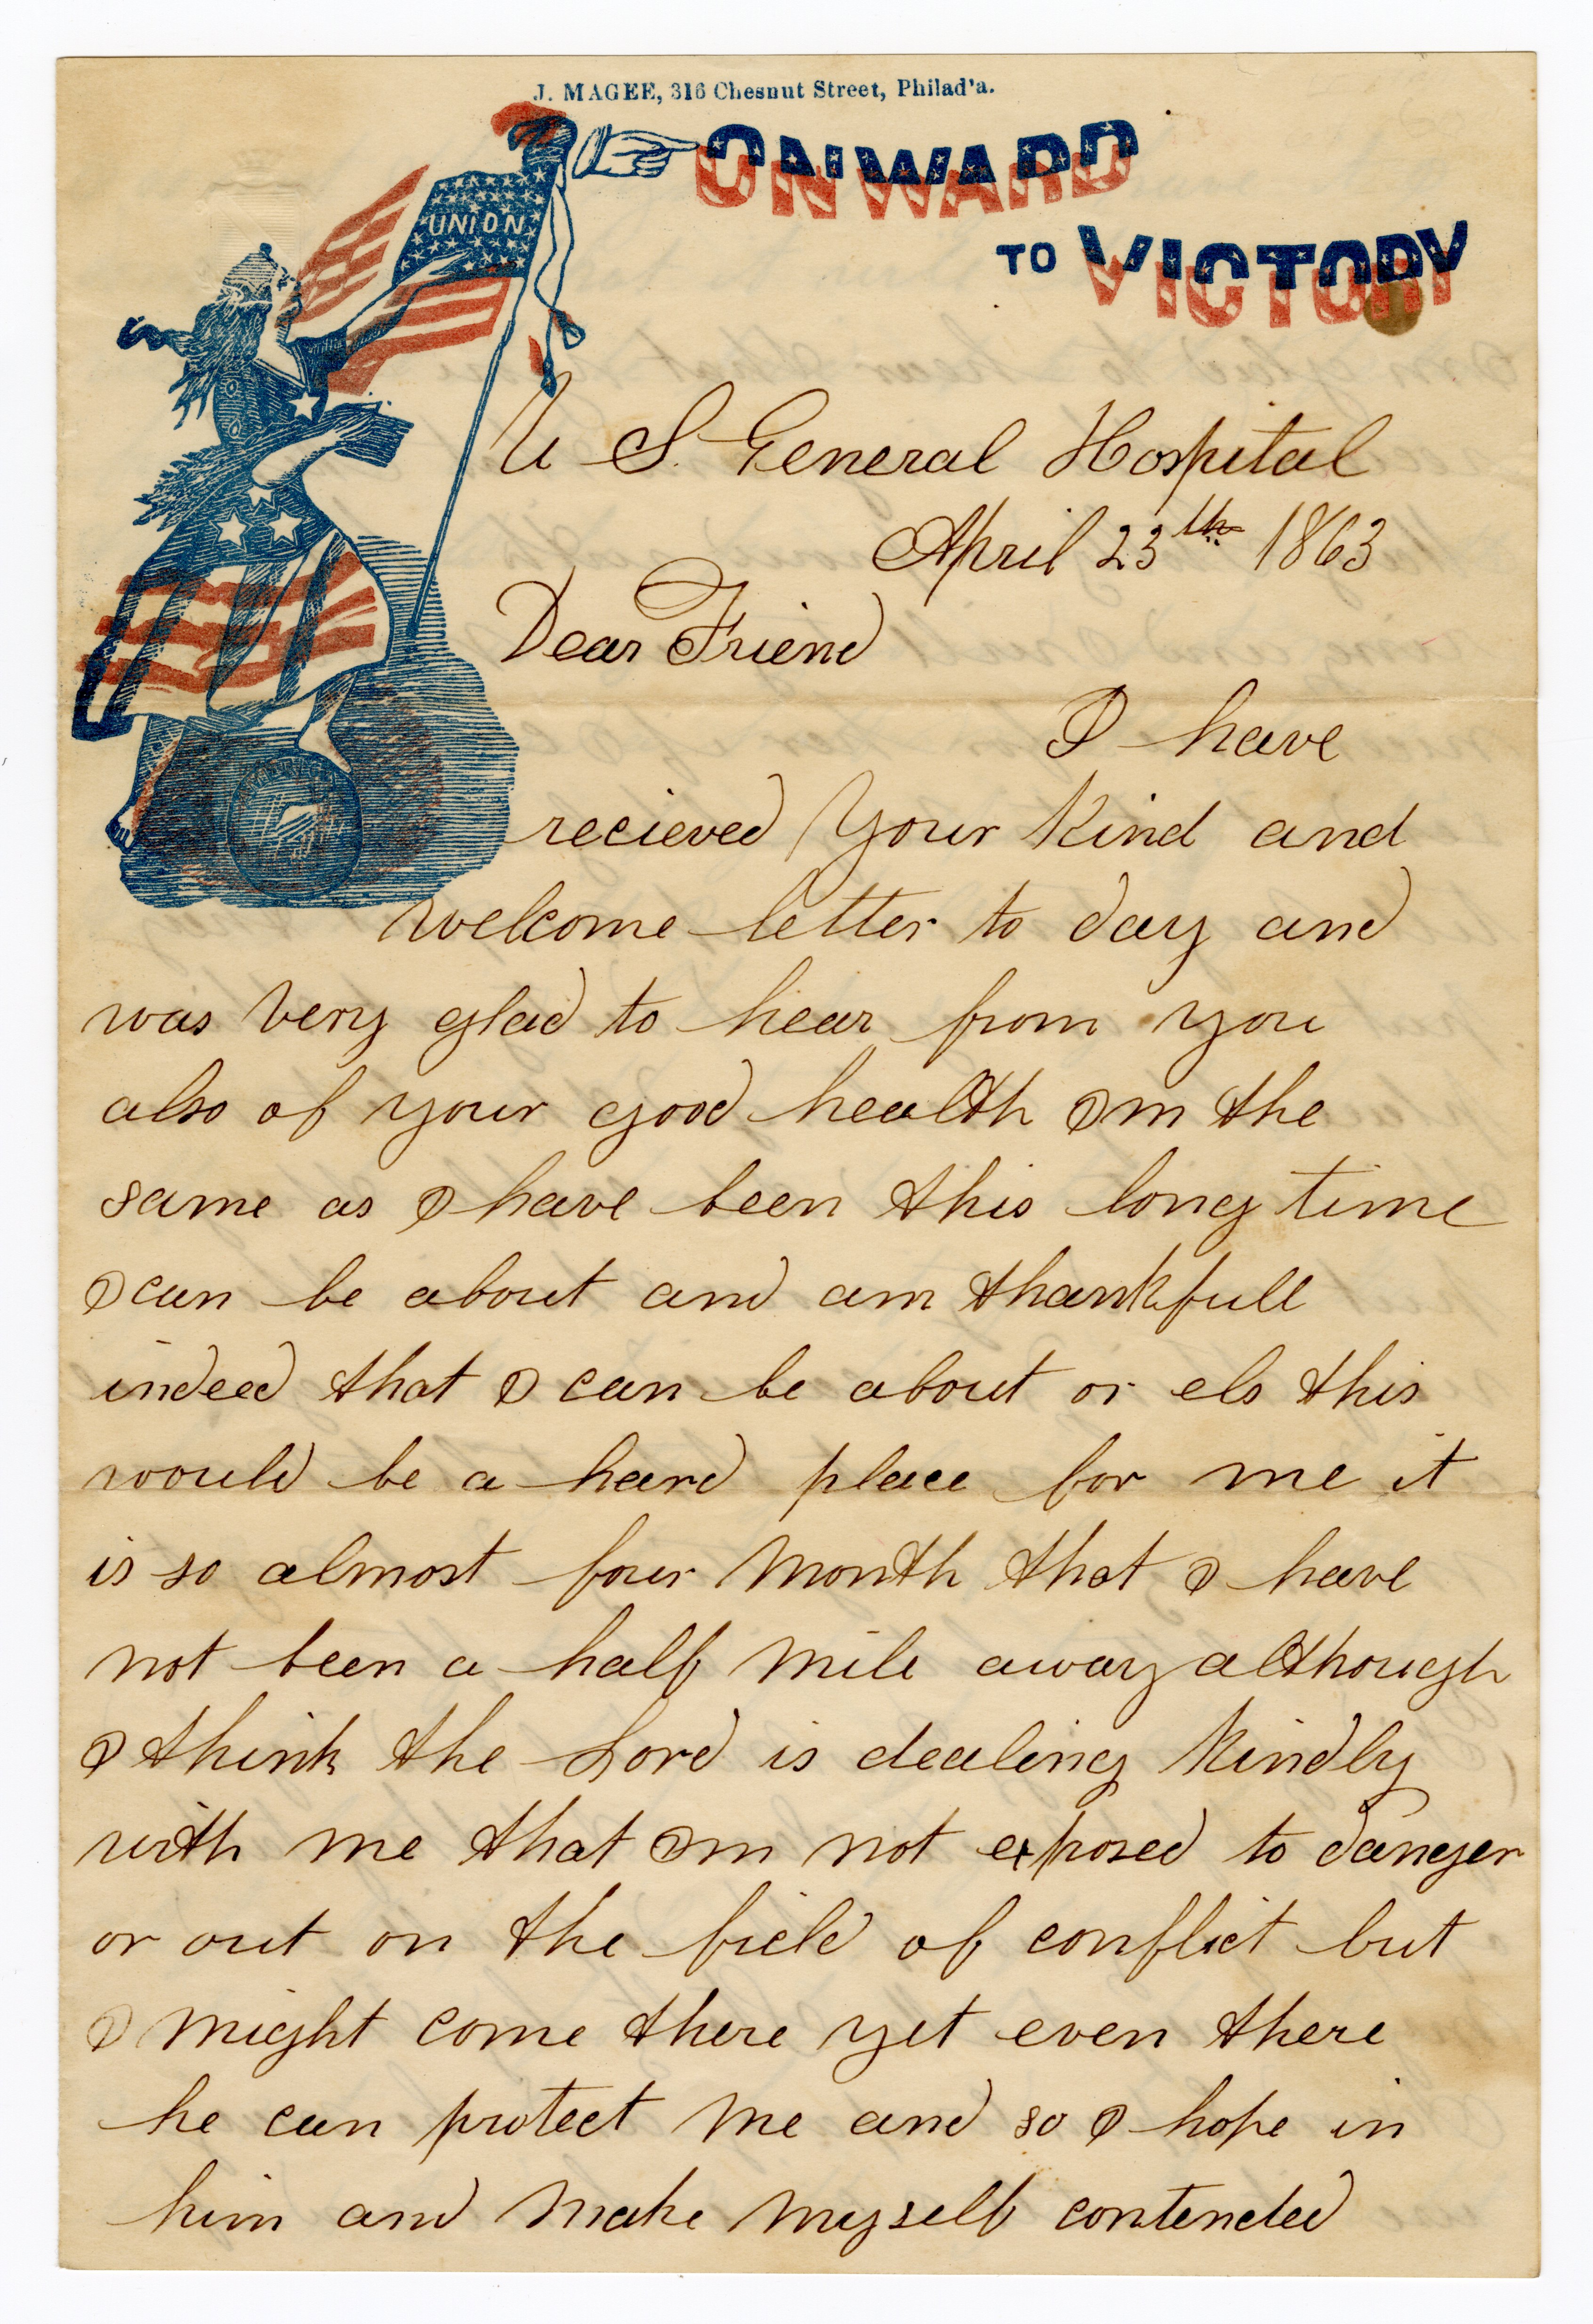 J. MAGEE, 316 Chesnut Street, Philad'a.
ONWARD
TO VICTORY
UNION
U S. General Hospital
April 23th 1863
Dear Friend
I have
recieved Your Kind and
welcome letter to day and
was very glad to hear from you
also of your good health Im the
same as I have been this long time
I can be about and am thankfull
indeed that I can be about or els this
would be a hard place for me it
is so almost four Month that I have
not been a half Mile away although
I think the Lord is dealing Kindly
with me that Im not exposed to danger
or out on the field of conflict but
I Might come there yet even there
he can protect Me and so I hope in
him and Make Myself contended